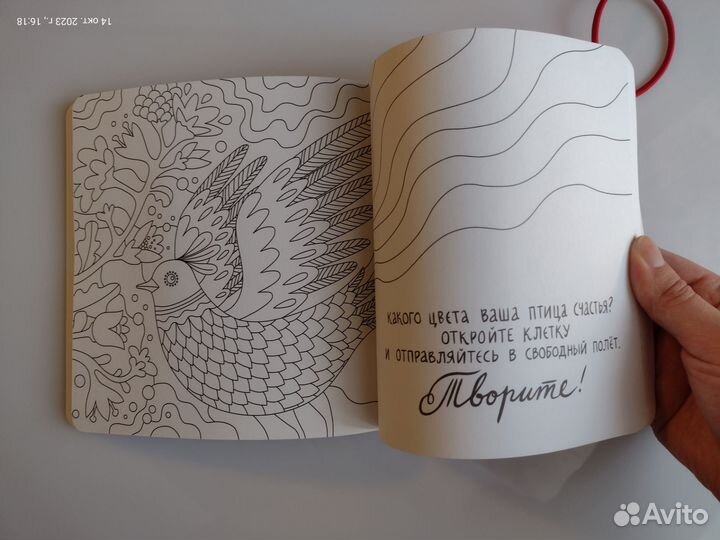 14 окт. 2023 г., 16:18
КАКОГО ЦВЕТА ВАША ПТИЦА СЧАСТЬЯ?
ОТКРОЙТЕ КЛЕТКУ
И ОТПРАВЛЯЙТЕСЬ В СВОБОДНЫЙ ПОЛЁТ.
Творите!
Avito